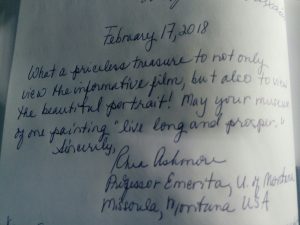 February 17, 2018
What a priceless treasure to not only
view the informative film, but also to view
the beautiful portrait! May your museum
of one painting "live long and prosper."
Sincerely,
Ashmore
Professor Emerita, U. of Montana
Missoula, Montana USA